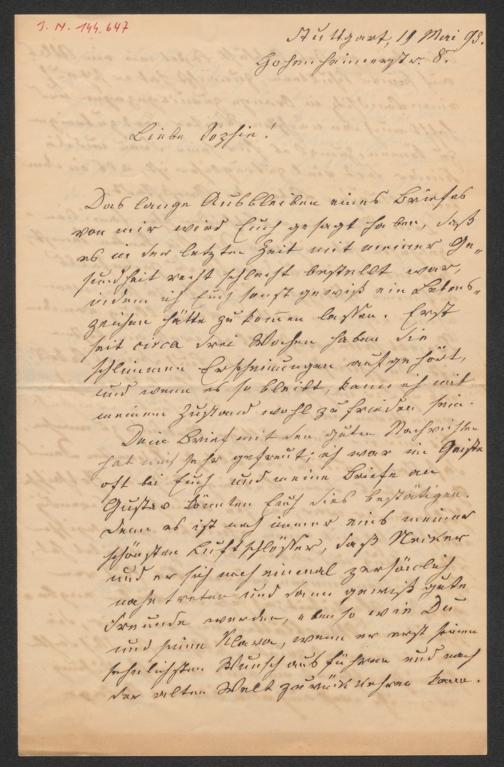 J. N. 144.647
Stuttgart, 11 Mai 93.
Hohenheimerstr. 8.
Liebe Sophie!
Das lange Ausbleiben eines Briefes
von mir wird Euch gesagt haben, daß
es in der letzten Zeit mit meiner Ge-
sundheit recht schlecht bestellt war,
indem ich Euch sonst gewiß ein Lebens-
zeichen hätte zukommen lassen. Erst
seit circa drei Wochen haben die
schlimmen Erscheinungen aufgehört,
und wenn es so bleibt, kann ich mit
meinem Zustand wohl zufrieden sein.
Dein Brief mit den guten Nachrichten
hat mich sehr gefreut; ich war im Geiste
oft bei Euch und meine Briefe an
Gustav könnten Euch dies bestätigen.
Denn es ist noch immer eins meiner
schönsten Luftschlösser, daß
und er sich noch einmal persönlich
nahe treten und dann gewiß gute
Freunde werden, ebenso wie Du
und seine Klara, wenn er erst seinen
sehnlichsten Wunsch ausführen und nach
der alten Welt zurückkehren kann.